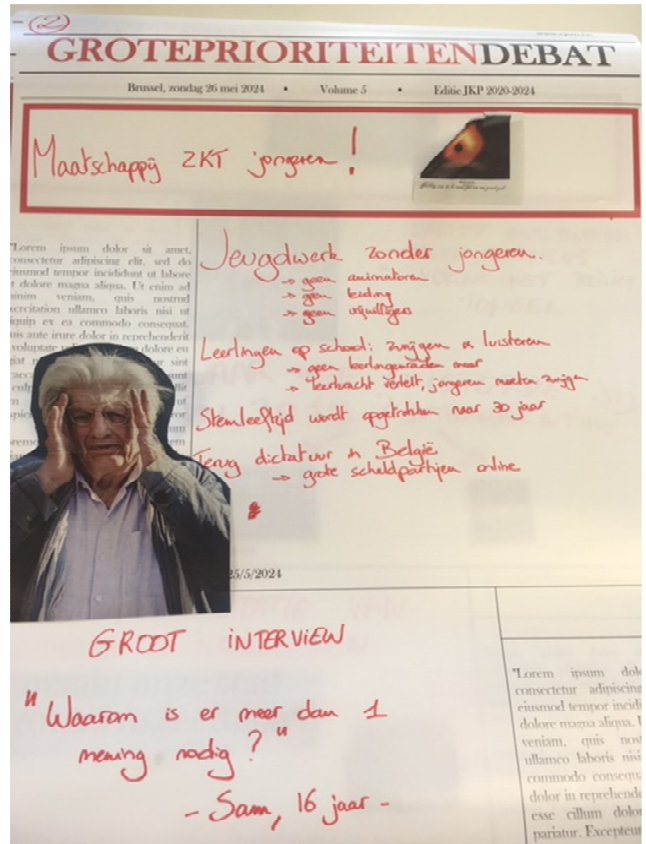 (2)
GROTEPRIORITEITENDEBAT
Brussel, zondag 26 mei 2024 • Volume 5 • Editie JKP 2020-2024
Maatschappij ZKT jongeren!
"Lorem ipsum dolor sit amet,
consectetur adipiscing elit, sed do
eiusmod tempor incididunt ut labore
t dolore magna aliqua. Ut enim ad
minim veniam, quis nostrud
exercitation ullamco laboris nisi ut
iquip ex ea commodo consequat.
uis aute irure dolor in reprehenderit
voluptate dolore eu
giat sint
Jeugdwerk zonder jongeren.
→ geen animatoren
→ geen leiding
→ geen vrijwilligers
Leerlingen op school: zwijgen & luisteren
→ geen leerlingenraden meer
→ leerkracht vertelt, jongeren moeten zwijgen
Stemleeftijd wordt opgetrokken naar 30 jaar
Terug dictatuur in België
→ grote scheldpartijen online
25/5/2024
GROOT INTERVIEW
"Waarom is er meer dan 1
mening nodig?"
- Sam, 16 jaar -
"Lorem ipsum dol
consectetur adipiscing
eiusmod tempor incidi
dolore magna aliqua. U
veniam, quis nost
ullamco laboris nisi
commodo consequa
dolor in reprehende
esse cillum dolo
pariatur. Excepteu